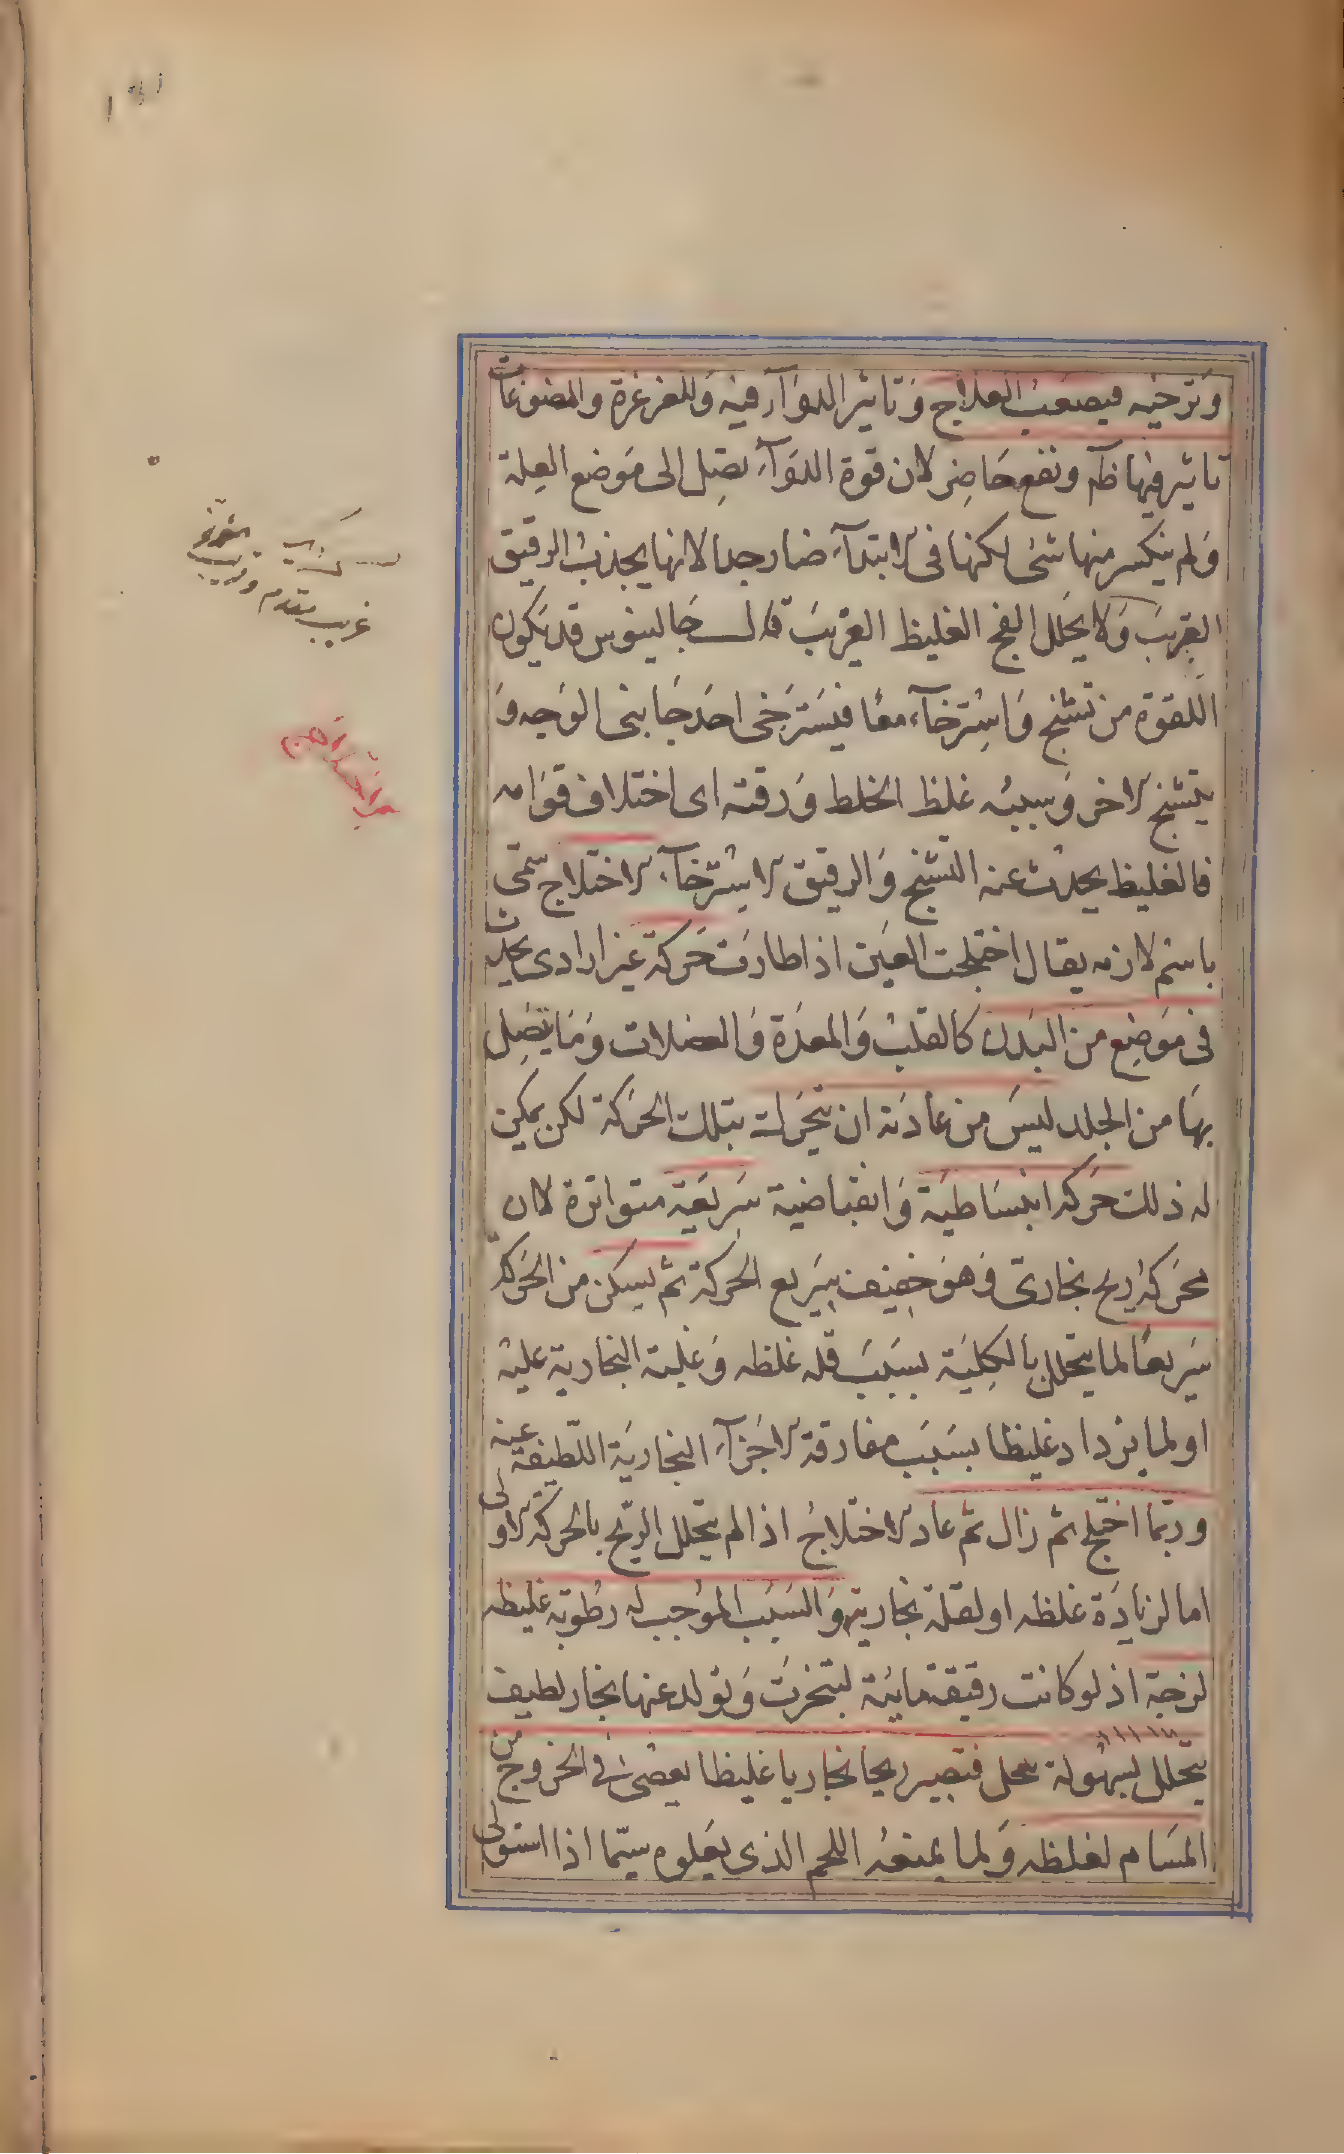 وَترخيه فيصعب العلاج وَتاثير الدوَآء فيه وَللغرغرة والمضوغات
تاثير فيها ظآم ونفع حَاضِر لان قوة الدوَآء تصِل الى مَوضع العلة
وَلم ينكسر منها شئ لكنها فى الابتدآء ضار جدا لانها يجذب الرقيق
القريبَ وَلا يحلل الفج الغليظ القريبَ قال جَالينوس قد يكون
اللقوة من تشنج وَاسْترخآء معًا فيسترَخى احَد جَانبى الوَجه وَ
يتشنج الاخر وَسببه غلظ الخلط وَرقته اى اختلاف قوَامه
فالغليظ يحدث عنه التشنج وَالرقيق الاسْترخآء الاختلاج سمّى
باسْم لازمه يقال اختلجت العين اذا طارت حَركة غير ارادى يحدث
فى مَوضِع من البَدن كالقلب وَالمعدَة وَالعضلات وَمَا يتصِل
بهَا من الجلد ليسَ من عَادَته ان يتحَرك بتلك الحَركة لكن يمكن
له ذلك حَركة انبسَاطيَة وَانقبَاضية سَريعَة متواترة لان
محَركهُ ريح بخارىّ وَهوَ خفيف سَريع الحَركة ثم يسكن من الحَركة
سَريعًا لما يتحلل بالكليَة بسَبَب قلة غلظه وَغلبة البخارية عليه
او لما يزداد غليظا بسَبَب مفارقة الاجزآء البخاريَة اللّطيفة عنه
وربّما اختلج ثم زال ثم عاد الاختلاج اذا لم يتحلل الريح بالحركة الاولى
اما لزيادَة غلظه او لقلة بخاريته وَالسَبَب الموجب له رطوبة غليظه
لزجة اذ لو كانت رقيقة مايَة لتبخرت وَتولد عنها بخار لطيف
يتحلل بسهولة فتصير ريحا بخاريا غليظا يعصى فى الخروج من
المسَام لغلظه وَلما يمنعه اللحم الذى يعلوه سيّما اذا استولى
غريب مقدم
الاختلاج